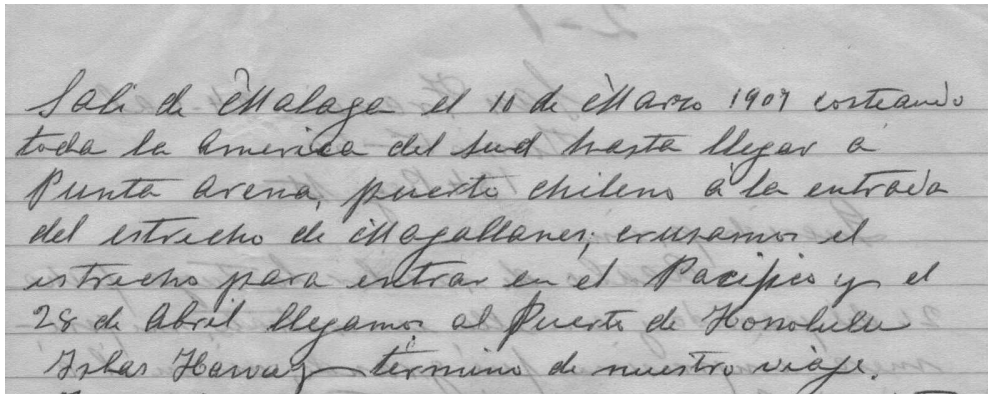 Sali de Malaga el 10 de Marzo 1907 costeando
toda la America del Sud hasta llegar a
Punta Arena, puerto chileno a la entrada
del estrecho de Magallanes; crusamos el
estrecho para entrar en el Pacifico y el
28 de Abril llegamos al Puerto de Honolulu
Islas Haway termino de nuestro viaje.